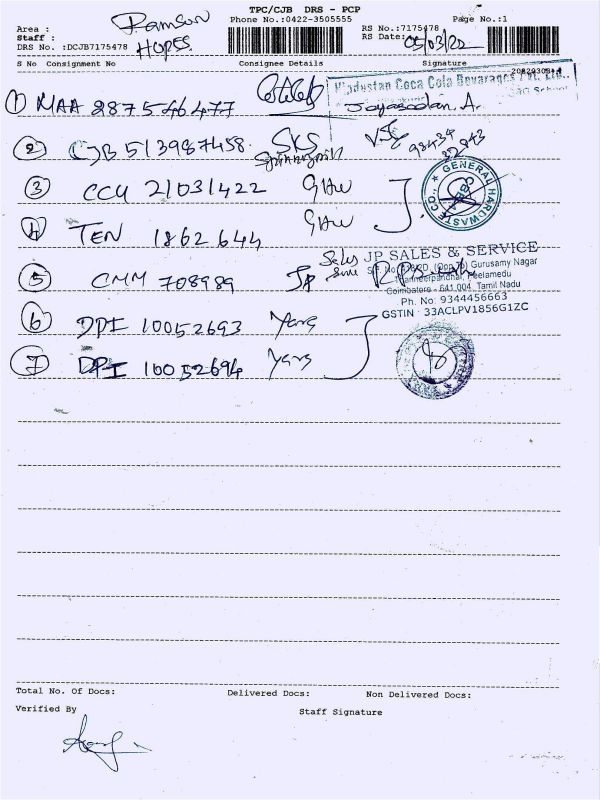 TPC/CJB DRS - PCP
Area : Ramson
Phone No.:0422-3505555
Page No.:1
Staff : HOPES
RS No.:7175478
DRS No. :DCJB7175478
RS Date: 05/03/22
S No Consignment No Consignee Details Signature
Hindustan Coca Cola Beverages Pvt. Ltd.,
① MAA 287546477
② CJB 513987458 SKS
98434
32843
③ CCU 21031422 GHW
GENERAL HARDWASTE CO.,
④ TEN 1862644 GHW
JP SALES & SERVICE
Gurusamy Nagar
Sales
⑤ CMM 708989 JP
Coimbatore - 641 004. Tamil Nadu
Ph. No: 9344456663
GSTIN : 33ACLPV1856G1ZC
⑥ DPI 10052693 Yans
⑦ DPI 10052694 Yans
Total No. Of Docs: Delivered Docs: Non Delivered Docs:
Verified By
Staff Signature